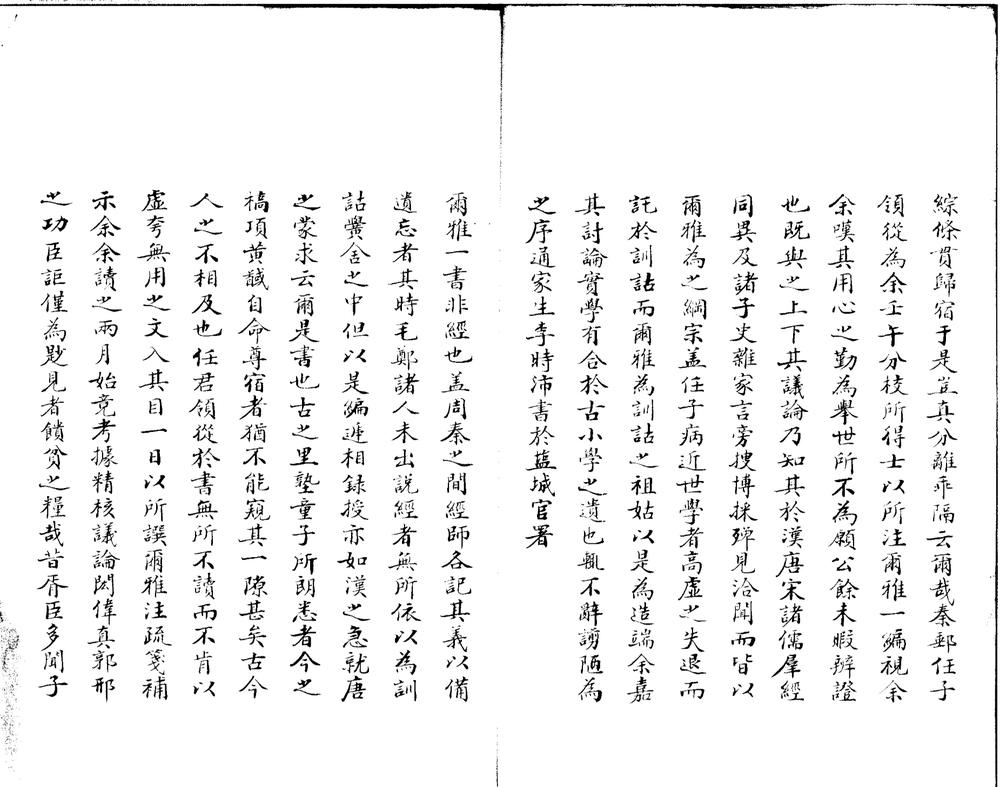 綜條貫歸宿于是豈真分離乖隔云爾哉秦郵任子
領從為余壬午分校所得士以所注爾雅一編視余
余嘆其用心之勤為舉世所不為願公餘未暇辨證
也既與之上下其議論乃知其於漢唐宋諸儒羣經
同異及諸子史雜家言旁搜博採殫見洽聞而皆以
爾雅為之綱宗盖任子病近世學者高虛之失退而
託於訓詁而爾雅為訓詁之祖姑以是為造端余嘉
其討論實學有合於古小學之遺也輒不辭謭陋為
之序通家生李時沛書於盐城官署
爾雅一書非經也盖周秦之間經師各記其義以備
遺忘者其時毛鄭諸人未出說經者無所依以為訓
詁黌舍之中但以是編遞相錄授亦如漢之急就唐
之蒙求云爾是書也古之里塾童子所朗悉者今之
槁項黄馘自命尊宿者猶不能窺其一隙甚矣古今
人之不相及也任君領從於書無所不讀而不肯以
虛夸無用之文入其目一日以所譔爾雅注疏箋補
示余余讀之兩月始竟考據精核議論閎偉真郭邢
之功臣詎僅為尠見者饋貧之糧哉昔胥臣多聞子